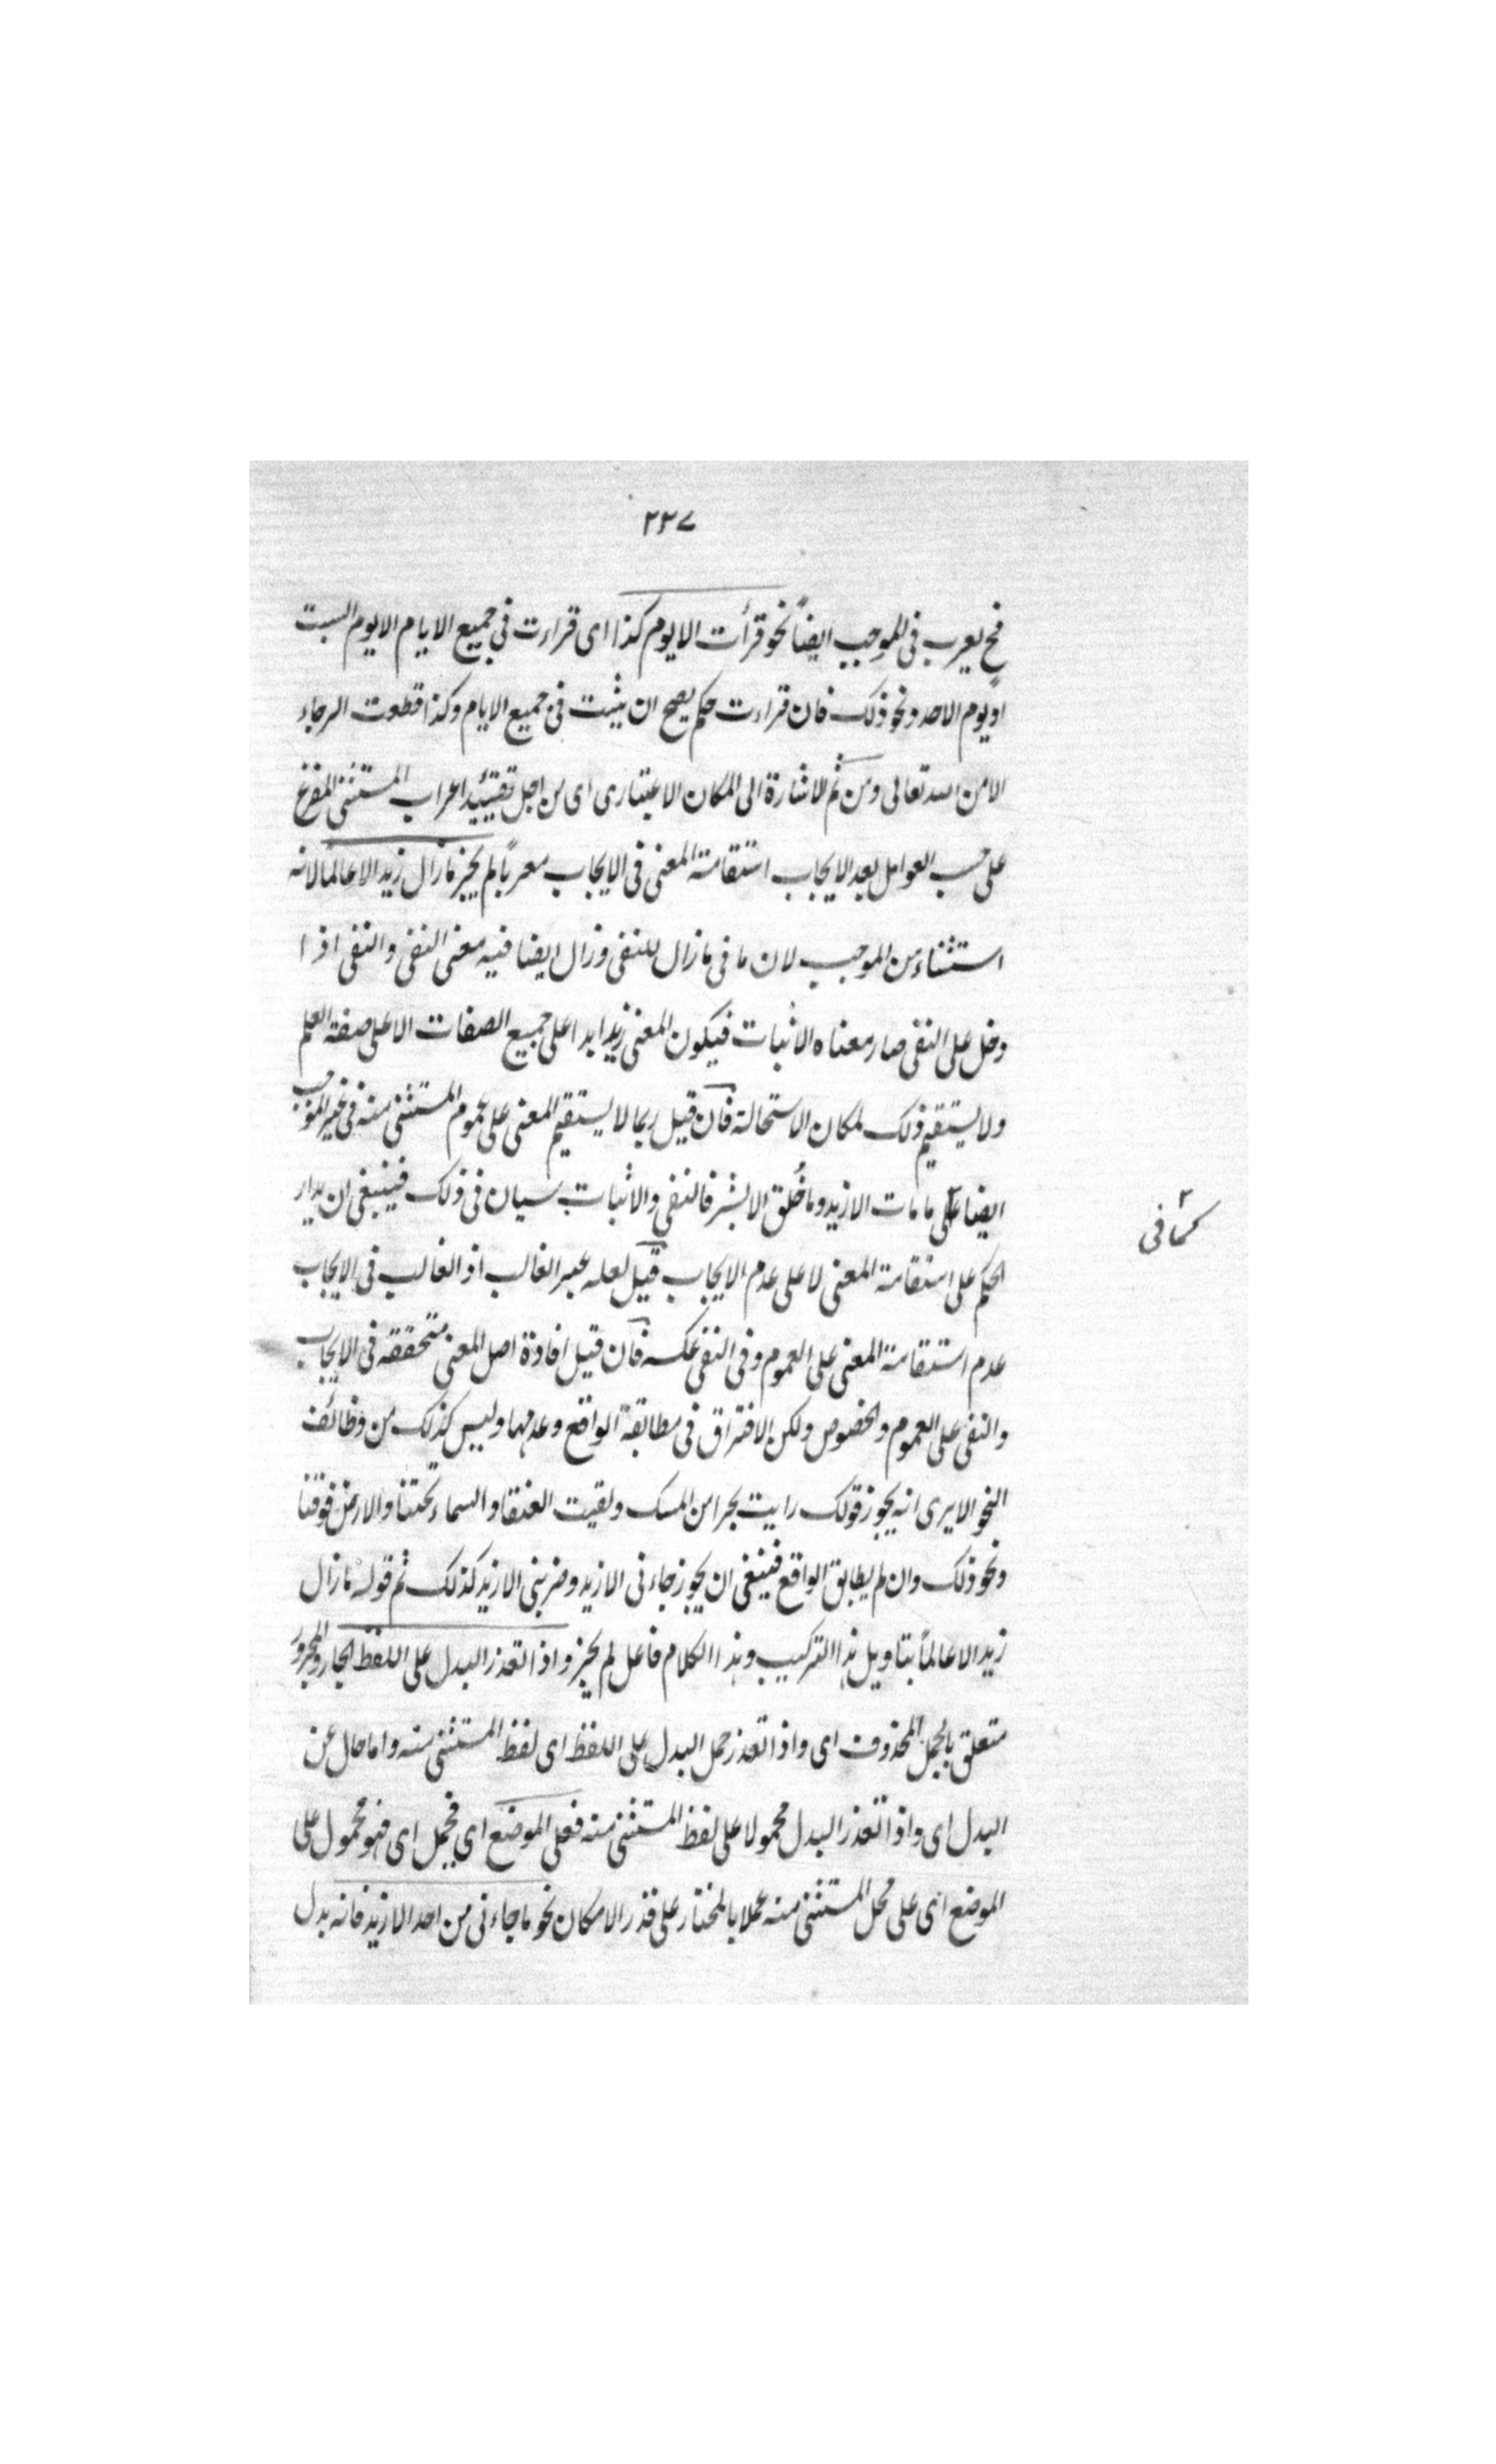 ٢٣٧
فح يعرب فى الموجب ايضاً نحو قرأت الا يوم كذا اى قراءت فى جميع الايام الا يوم السبت
او يوم الاحد ونحو ذلك فان قراءت حكم يصح ان يثبت فى جميع الايام وكذا قطعت الرجاء
الا من الله تعالى ومن ثم الاشارة الى المكان الاعتبارى اى من اجل تقييد اعراب المستثنى المفرغ
على حسب العوامل بعد الايجاب استقامة المعنى فى الايجاب معرباً لم يجز ما زال زيد الا عالماً لانه
استثناء من الموجب لان ما فى ما زال للنفى وزال ايضا فيه معنى النفى والنفى اذا
دخل على النفى صار معناه الاثبات فيكون المعنى زيد ابدا على جميع الصفات الا على صفة العلم
ولا يستقيم ذلك لمكان الاستحالة فان قيل ربما لا يستقيم المعنى على عموم المستثنى منه فى غير الموجب
ايضا ما مات الا زيد وما خُلق الا بشر فالنفى والاثبات سيان فى ذلك فينبغى ان يدار
كما فى
الحكم على استقامة المعنى لا على عدم الايجاب قيل لعله عبر الغالب اذ الغالب فى الايجاب
عدم استقامة المعنى على العموم وفى النفى عكسه فان قيل افادة اصل المعنى متحققه فى الايجاب
والنفى على العموم والخصوص ولكن الافتراق فى مطابقة الواقع وعدمها وليس كذلك من وظائف
النحو الا يرى انه يجوز قولك رايت بحرا من المسك ولقيت العنقا والسماء تحتنا والارض فوقنا
ونحو ذلك وان لم يطابق الواقع فينبغى ان يجوز جاءنى الا زيد وضربنى الا زيد كذلك ثم قوله ما زال
زيد الا عالماً بتاويل هذا التركيب وهذا الكلام فاعل لم يجز واذا تعذر البدل على اللفظ الجار والمجرور
متعلق بالحمل المحذوف اى واذا تعذر حمل البدل على اللفظ اى لفظ المستثنى منه واما حال عن
البدل اى واذا تعذر البدل محمولا على لفظ المستثنى منه فعلى الموضع اى فيحمل اى فهو محمول على
الموضع اى على محل المستثنى منه عملا بالمختار على قدر الامكان نحو ما جاءنى من احد الا زيد فانه بدل